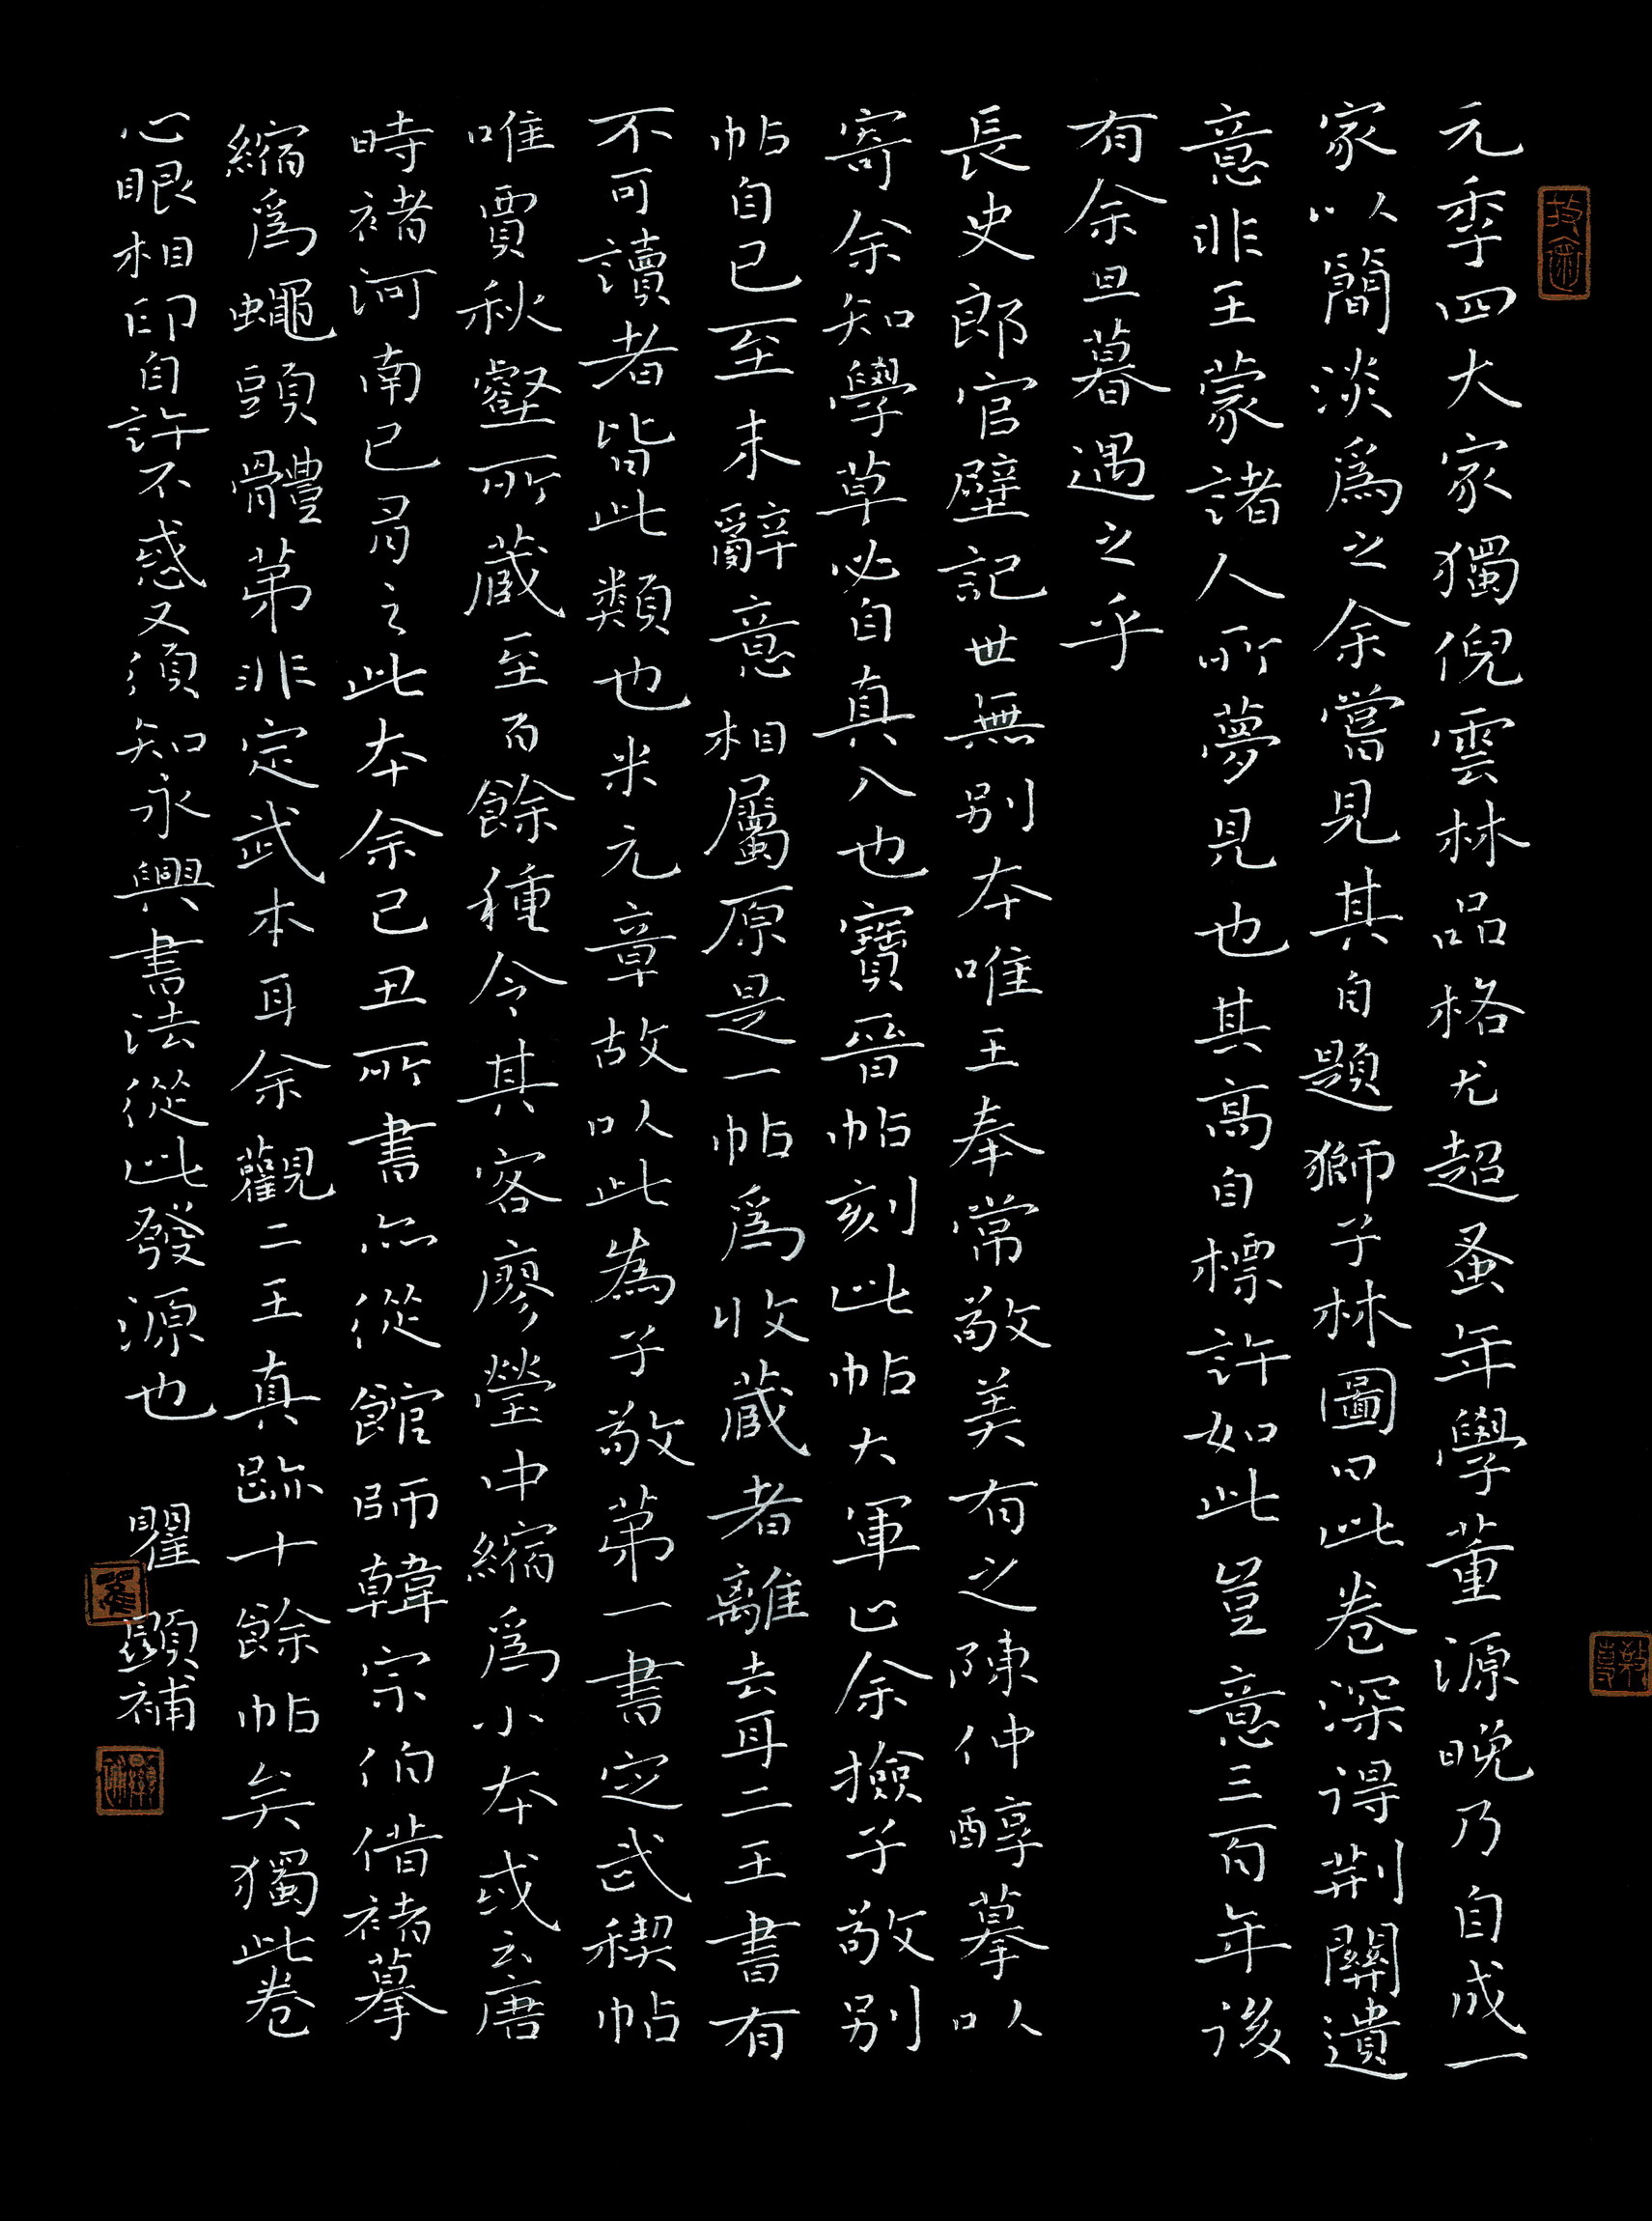 元季四大家獨倪雲林品格尤超蚤年學董源晚乃自成一
家以簡淡為之余嘗見其自題獅子林圖曰此卷深得荆關遺
意非王蒙諸人所夢見也其高自標許如此豈意三百年後
有余旦暮遇之乎
長史郎官壁記世無别本唯王奉常敬美有之陳仲醇摹以
寄余知學草必自真入也寶晉帖刻此帖大軍止余撿子敬别
帖自已至末辭意相屬原是一帖為收藏者離去耳二王書有
不可讀者皆此類也米元章故以此為子敬第一書定武禊帖
唯賈秋壑所藏至百餘種令其客廖瑩中縮為小本或云唐
時褚河南已有之此本余己丑所書亦從館師韓宗伯借褚摹
縮為蠅頭體第非定武本耳余觀二王真跡十餘帖矣獨此卷
心眼相印自許不惑又須知永興書法從此發源也 瞿顯補